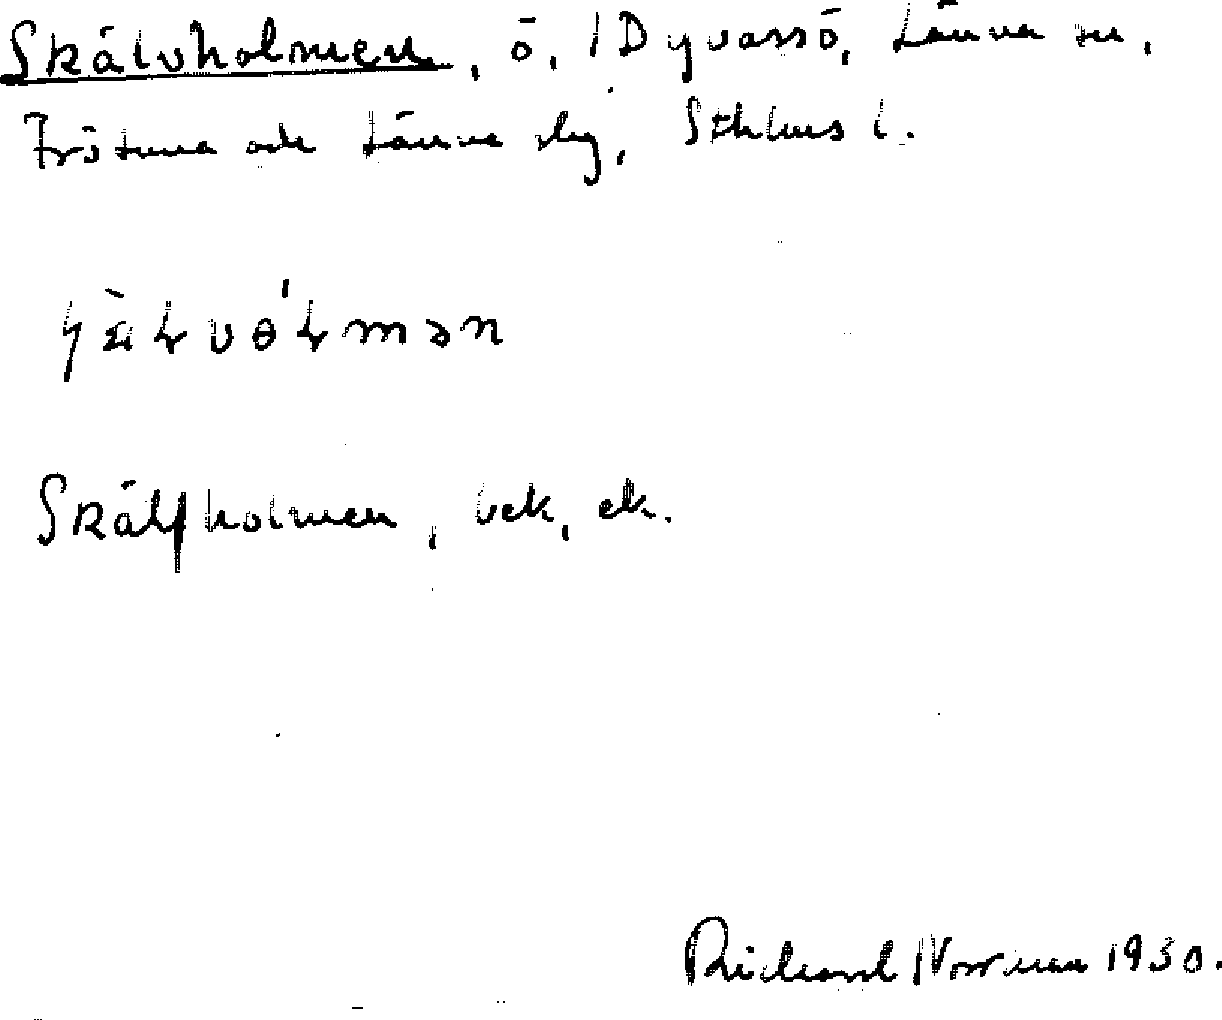 Skälvholmen, ö, i Dyvassö, Länna sn,
Frötuna och Länna slg, Sthlms l.
Skälfholmen, bek, ek.
Rickard Norrman 1930.